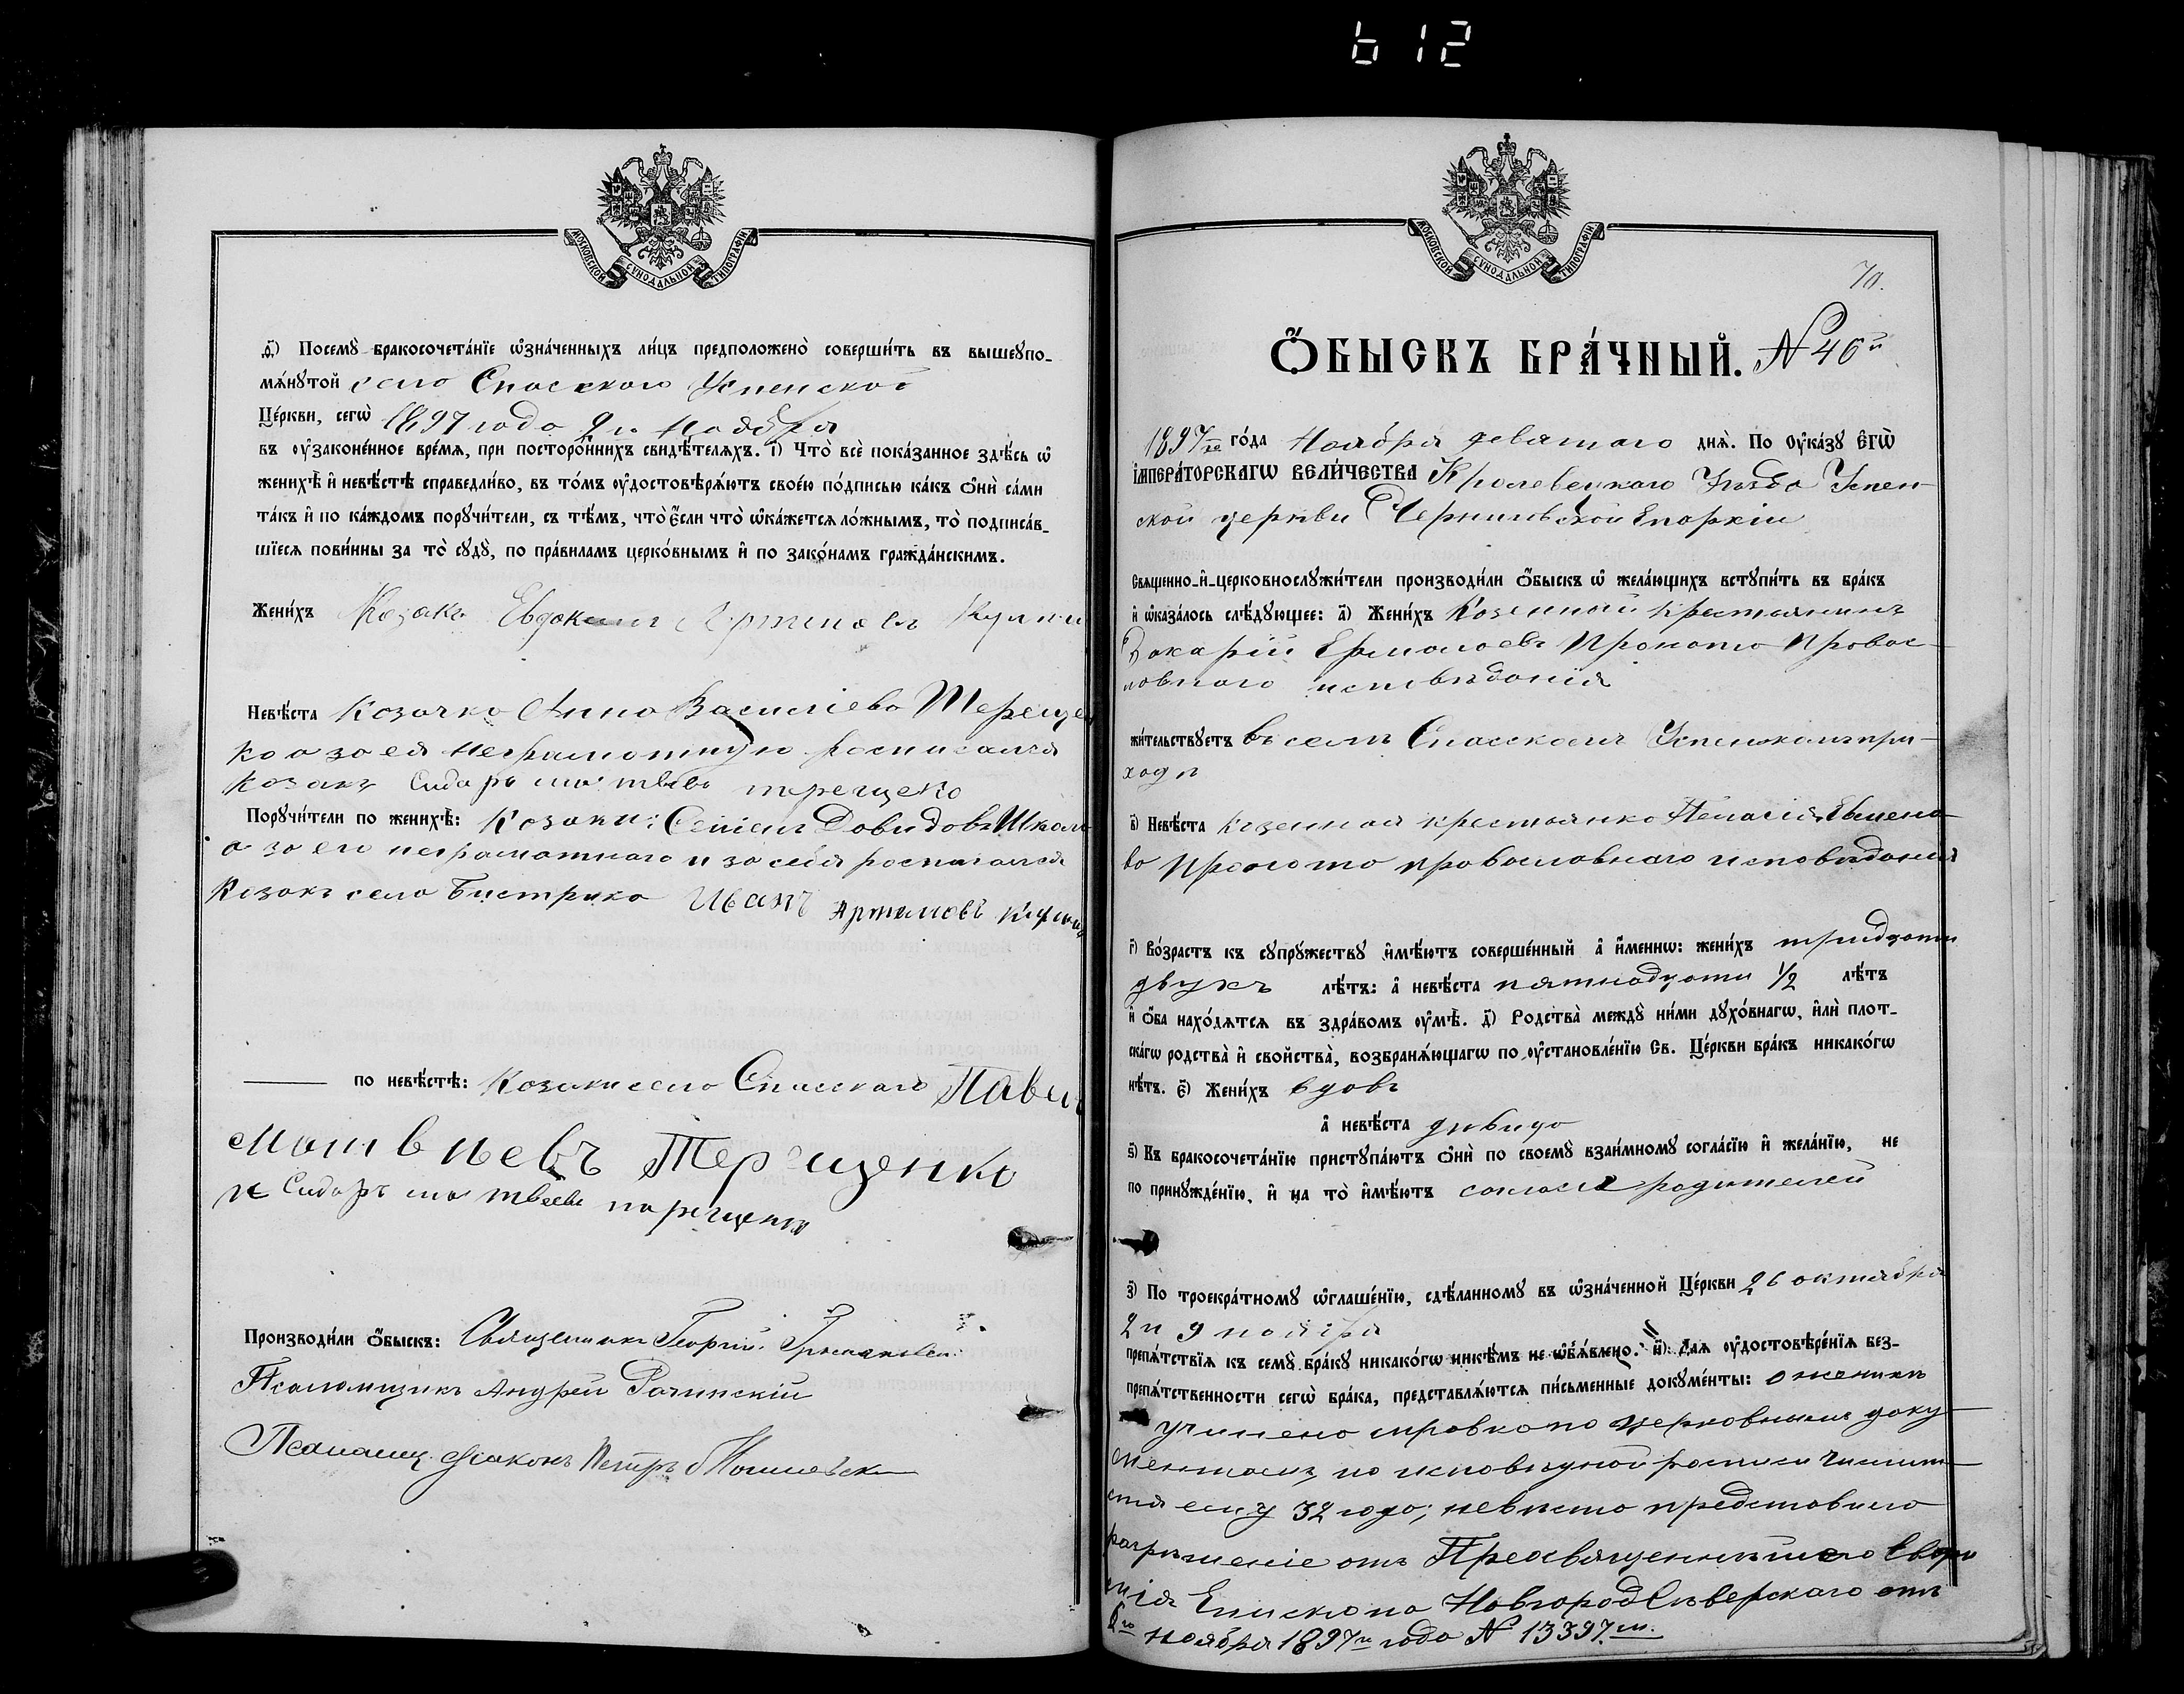 612
МОСКОВСКОЙ СУНОДАЛЬНОЙ ТИПОГРАФІИ
ѳ҃) Посемꙋ̀ бракосочета́нїе ѡ҆зна́ченныхъ ли́цъ предположено̀ соверши́ть въ вышеꙋпо-
мѧ́нꙋтой села Спасскаго Успенской
Це́ркви, сегѡ̀ 1897 года 9 го Ноября
въ ѹ҆зако́ненное вре́мѧ, при посторо́ннихъ свидѣ́телѧхъ. і҃) Что̀ всѐ пока́занное здѣ́сь ѡ҆
женихѣ̀ и҆ невѣ́стѣ справедли́во, въ то́мъ ѹ҆достовѣрѧ́ютъ свое́ю по́дписью ка́къ ѻ҆нѝ са́ми
та́къ и҆ по ка́ждомъ порꙋчи́тели, съ тѣ́мъ, что̀ є҆́сли что̀ ѡ҆ка́жетсѧ ло́жнымъ, то̀ подписа́в-
шїесѧ пови́нны за то̀ сꙋдꙋ̀, по пра́виламъ церко́внымъ и҆ по зако́намъ гражда́нскимъ.
Жени́хъ Козакъ Евдоким
Невѣ́ста Козачка Анна Васильева Терещен
ко а за ея неграмотную росписался
Козакъ Сидоръ
Порꙋчи́тели по женихѣ̀: Козаки: Семенъ Довидовъ
а за его неграмотнаго и за себя росписался
Козакъ села Быстрика Иванъ Артемовъ
по невѣ́стѣ: Козаки села Спасскаго Павел
Матвѣевъ Терещенко
и Сидоръ
Производи́ли ѻ҆́быскъ: Священникъ Георгій
Псаломщикъ Андрей Рачинскій
Псаломщ. діаконъ Петръ
МОСКОВСКОЙ СУНОДАЛЬНОЙ ТИПОГРАФІИ
70.
Ѻ҆́БЫСКЪ БРА́ЧНЫЙ. № 46й
1897 го го́да Ноября девятаго днѧ̀. По ѹ҆ка́зꙋ Є҆гѡ̀
І҆МПЕРА́ТОРСКАГѠ ВЕЛИ́ЧЕСТВА Кролевецкаго Уѣзда Успен-
ской церкви Черниговской Епархіи
Свѧщенно-и҆-церковнослꙋжи́тели производи́ли ѻ҆́быскъ ѡ҆ жела́ющихъ встꙋпи́ть въ бра́къ
и҆ ѡ҆каза́лось слѣ́дꙋющее: а҃) Жени́хъ Козенный крестьянинъ
Захарій Ермолаевъ Провос-
ловнаго исповѣданія
жи́тельствꙋетъ въ селѣ Спасскомъ Успенском при-
ходѣ
в҃) Невѣ́ста козенная крестьянка Пелагія
ва православнаго исповѣданія
г҃) Во́зрастъ къ сꙋпрꙋ́жествꙋ и҆мѣ́ютъ соверше́нный а҆ и҆́меннѡ: жени́хъ тридцати
двухъ лѣ́тъ: а҆ невѣ́ста пятнадцати 1/2 лѣ́тъ
и҆ ѻ҆́ба нахо́дѧтсѧ въ здра́вомъ ѹ҆мѣ̀. д҃) Родства̀ междꙋ̀ ни́ми дꙋхо́внагѡ, и҆лѝ плот-
ска́гѡ родства̀ и҆ свойства̀, возбранѧ́ющагѡ по ѹ҆становле́нїю Св. Це́ркви бра́къ никако́гѡ
нѣ́тъ. є҃) Жени́хъ вдовъ
а҆ невѣ́ста дѣвица
ѕ҃) Къ бракосочета́нїю пристꙋпа́ютъ ѻ҆нѝ по своемꙋ̀ взаи́мномꙋ согла́сїю и҆ жела́нїю, не
по принꙋжде́нїю, и҆ на то̀ и҆мѣ́ютъ согласіе родителей
з҃) По троекра́тномꙋ ѡ҆глаше́нїю, сдѣ́ланномꙋ въ ѡ҆зна́ченной Це́ркви 26 октября
2 и 9 ноября
препѧ́тствїѧ къ семꙋ̀ бра́кꙋ никако́гѡ никѣ́мъ не ѡ҆б̾ѧ́влено. и҃) Длѧ ѹ҆достовѣре́нїѧ без-
препѧ́тственности сегѡ̀ бра́ка, представлѧ́ютсѧ пи́сьменные докꙋме́нты: о женихѣ
учинена справка по церковнымъ доку-
ментамъ, по исповѣдной росписи числит-
ся ему 32 года; невѣста представила
разрѣшеніе отъ Преосвященнѣйшаго
Епископа НовгородСѣверскаго отъ
ноября 1897 го года № 13397 м.